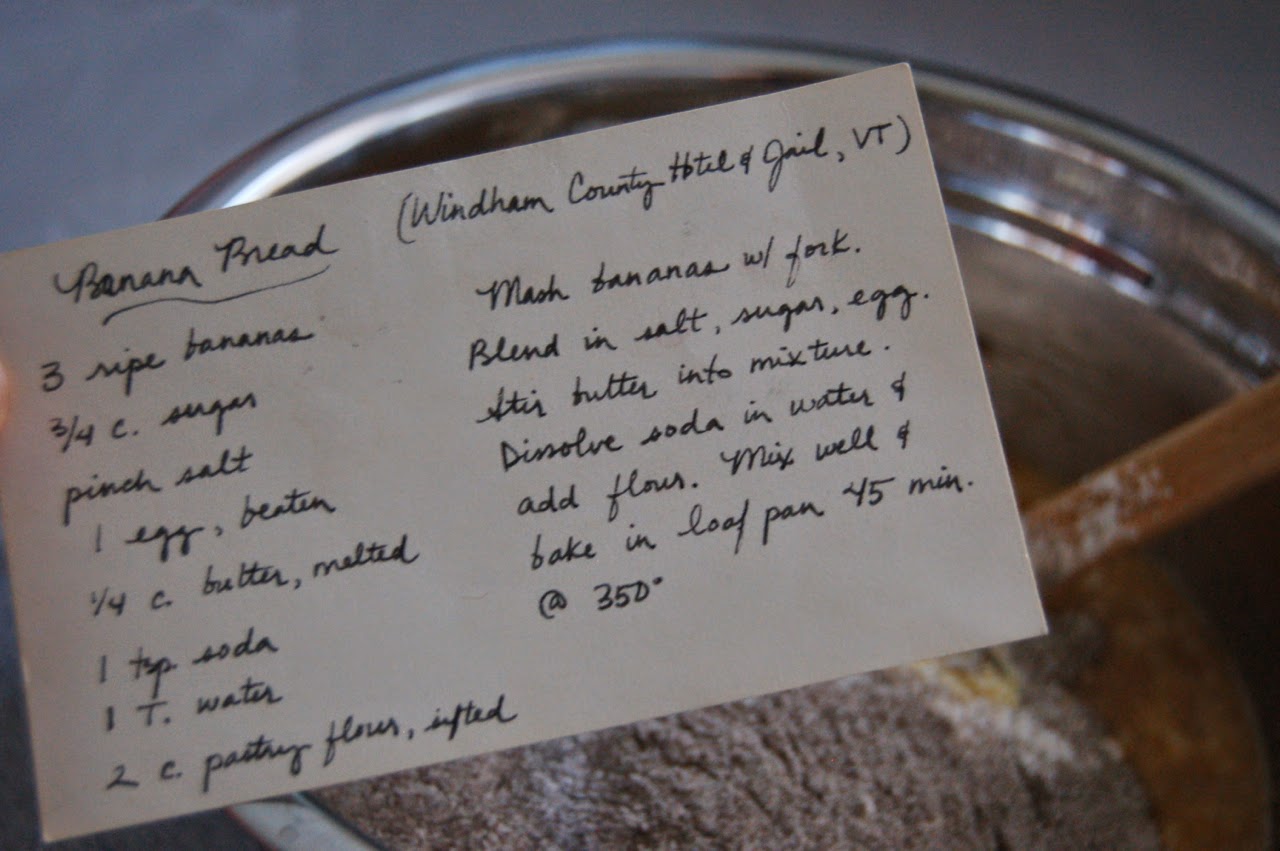 Banana Bread (Windham County Hotel & Jail, VT)
3 ripe bananas
3/4 c. sugar
pinch salt
1 egg, beaten
1/4 c. butter, melted
1 tsp soda
1 T. water
2 c. pastry flour, sifted
Mash bananas w/ fork.
Blend in salt, sugar, egg.
Stir butter into mixture.
Dissolve soda in water &
add flour. Mix well &
bake in loaf pan 45 min.
@ 350°